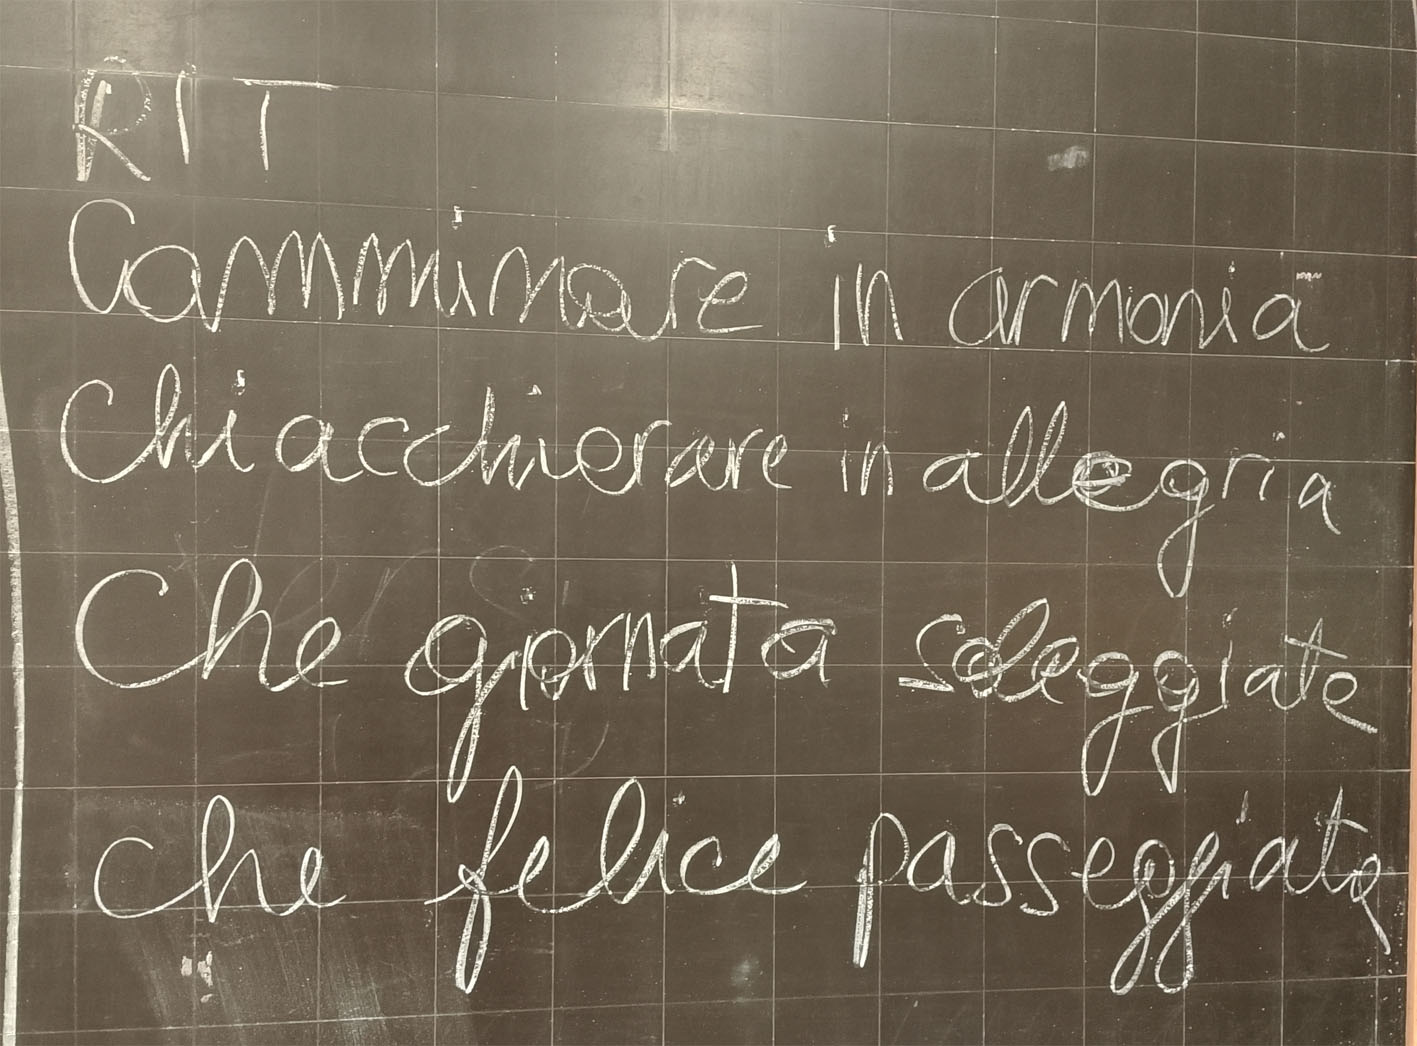 RIT
Camminare in armonia
Chiacchierare in allegria
Che giornata soleggiate
che felice passeggiata